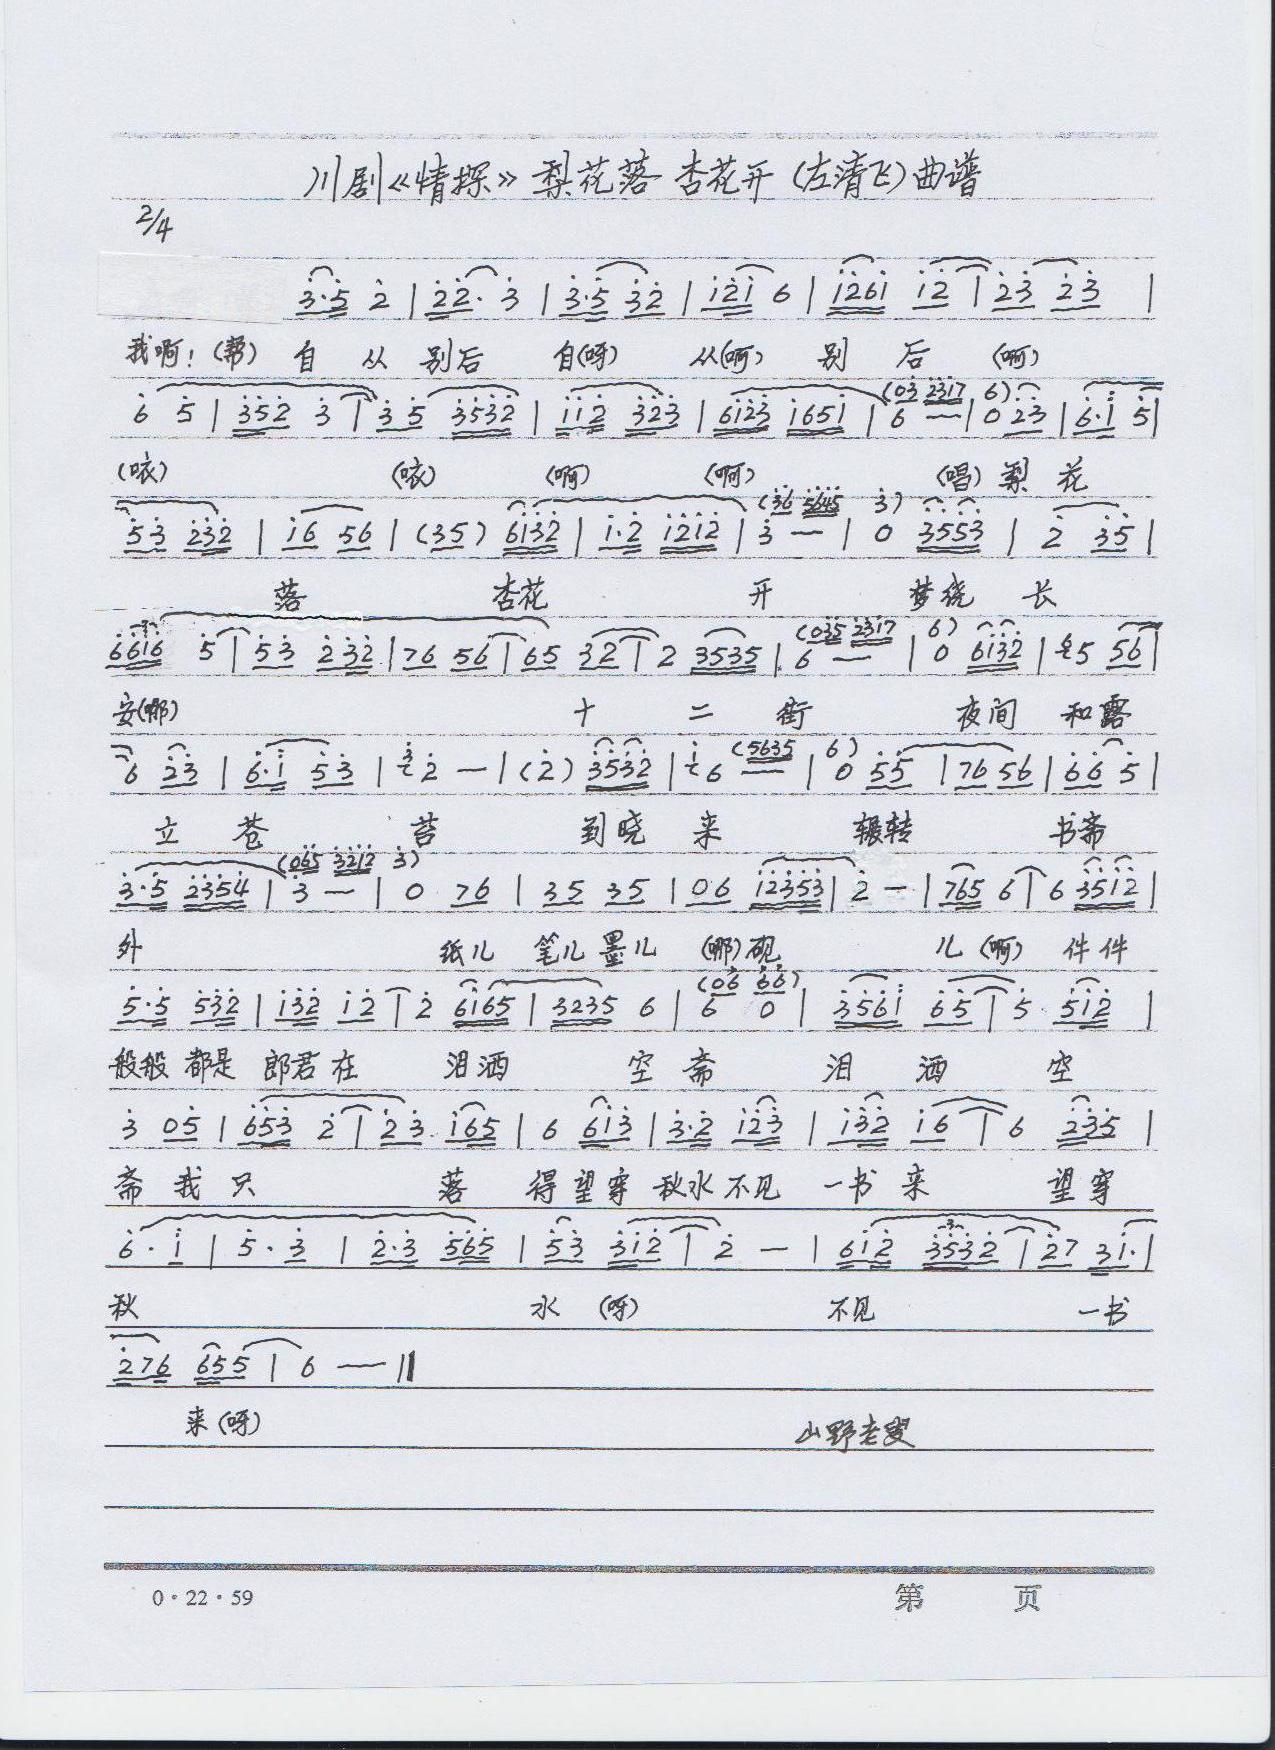 川剧《情探》梨花落 杏花开（左清飞）曲谱
2/4
3·5 2 | 22· 3 | 3·5 32 | 121 6 | 1261 12 | 23 23 |
我啊！（帮）自 从 别后 自（呀） 从（啊） 别 后 （啊）
(03 2317 6)
6 5 | 352 3 | 35 3532 | 112 323 | 6123 1651 | 6 — | 0 23 | 6·1 5 |
（咳） （咳） （啊） （啊） （唱）梨 花
(36 5645 3)
53 232 | 16 56 | (35) 6132 | 1·2 1212 | 3 — | 0 3553 | 2 35 |
落 杏花 开 梦绕 长
(035 2317 6)
6616 5 | 53 232 | 76 56 | 65 32 | 2 3535 | 6 — | 0 6132 | 65 56 |
安（哪） 十 二 街 夜间 和露
(5635 6)
6 23 | 6·1 53 | 32 — | (2) 3532 | 16 — | 0 55 | 76 56 | 66 5 |
立 苍 苔 到晓 来 辗转 书斋
(065 3212 3)
3·5 2354 | 3 — | 0 76 | 35 35 | 06 12353 | 2 — | 765 6 | 6 3512 |
外 纸儿 笔儿 墨儿 （哪）砚 儿（啊） 件件
(06 66)
5·5 532 | 132 12 | 2 6165 | 3235 6 | 6 0 | 3561 65 | 5 512 |
般般 都是 郎君在 泪洒 空 斋 泪 洒 空
3 05 | 653 2 | 23 165 | 6 613 | 3·2 123 | 132 16 | 6 235 |
斋 我 只 落 得望穿 秋水 不见 一书 来 望 穿
6· 1 | 5· 3 | 2·3 565 | 53 312 | 2 — | 612 3532 | 27 31· |
秋 水 （呀） 不见 一书
276 655 | 6 — ||
来（呀） 山野老叟
0·22·59 第 页